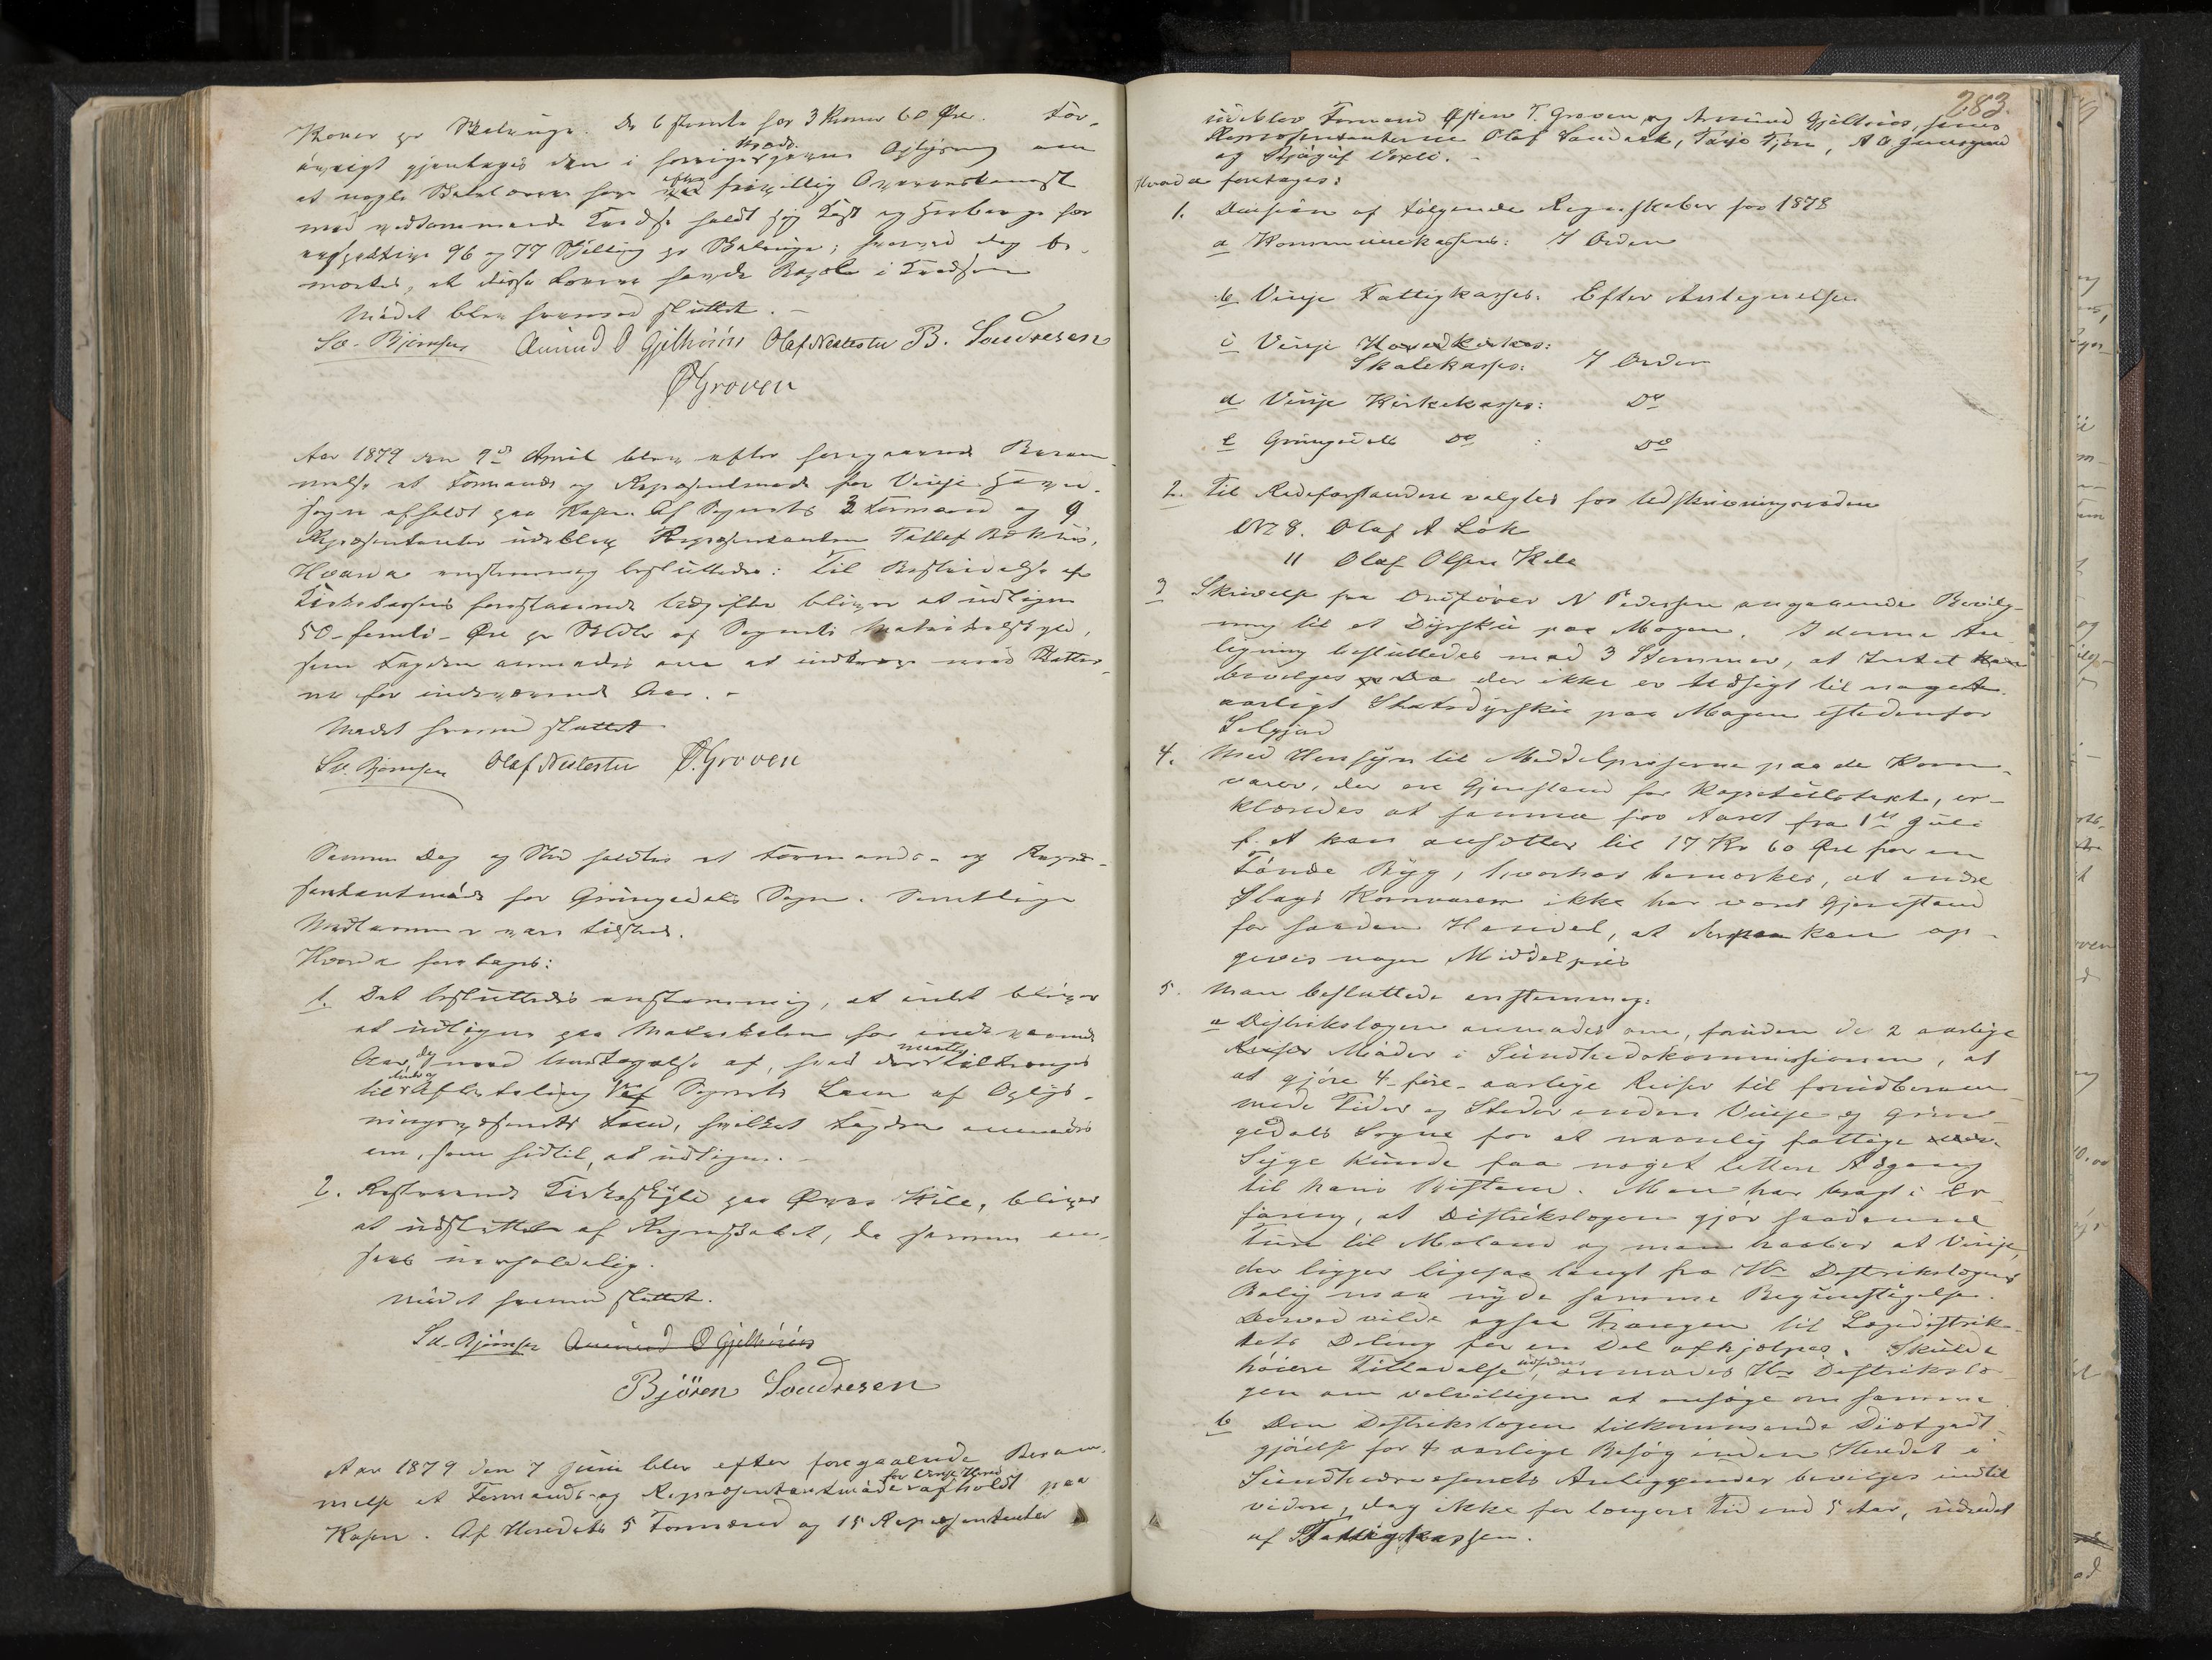 Koner pr Skalpund. De 6 første for 3 Kroner 60 Øre. For-
øvrigt gjentages den i forrige Møde givne Oplysning om
at nogle have efter frivillig Overenskomst
med vedkommende Lærer holdt sig Kost og Herberge for
96 og 77 Skilling pr ; hvorved dog be-
mærkes, at disse Lærere havde Bopæl i Kredsen
Mødet blev hermed sluttet. –
Sv. Bjørnsen Aamund O Gjelhuus Olaf Nestestu B. Sondresen
Ø. Groven
Aar 1879 den 9de April blev efter foregaaende Beram-
melse et Formands og Repræsentmøde for Vinje Hoved-
sogn afholdt paa Kosen. Af Sognets 3 Formænd og 9
Repræsentanter udeblev Repræsentanten Tallef Bøkhus.
Hvorda enstemmig besluttedes: Til Bestridelse af
Kirkekassens forestaaende Udgifter bliver at udligne
50 – femti – Øre pr Skdlr af Sognets Matrikulskyld,
som Fogden anmodes om at indkræve med Skatter-
ne for indeværende Aar. –
Mødet hermed sluttet
Sv. Bjørnsen Olaf Nestestu Ø. Groven
Samme Dag og Sted holdtes et Formands- og Repræ-
sentantmøde for Grungedals Sogn. Samtlige
Medlemmer vare tilstede.
Hvorda foretages:
1. Det besluttedes enstemmig, at intet bliver
at udligne paa Matrikulen for indeværende
Aar, dog med Undtagelse af, hvad der maatte tiltrænges
til Afbetaling paa Sognets Laan af Oplys-
ningsvæsenets Fond, hvilket Fogden anmodes
om, som hidtil, at udligne. –
2. Resterende Kirkeskyld paa Øvre Hile, bliver
at udslette af Regnskabet, da samme an-
sees uerholdelig.
Mødet hermed sluttet.
Sv. Bjørnsen Aamund O Gjelhuus
Björen Sondresen
Aar 1879 den 7 Juni blev efter foregaaende Beram-
melse et Formands- og Repræsentantmøde for Vinje Hered afholdt paa
Kosen. Af Heredets 5 Formænd og 15 Repræsentanter
283.
udeblev Formænd Østen T. Groven og Aamund Gjelhuus, samt
Repræsentanterne Olaf Sandark, Tarje Tjøn, A O
og Gjøguf Vexli. –
Hvorda foretages:
1. Decision af følgende Regnskaber for 1878
a Kommunekassens: I Orden
b Vinje Fattigkasses: Efter Antegnelse
c Vinje Hovedkirkes:
Skolekasses: I Orden
d Vinje Kirkekasses: Do
e Grungedals Do : Do
2. Til Rodeforstandere valgtes for Udskrivningsroden
No 8. Olaf A Løk
11 Olaf Olsen Kela
3 Skrivelse fra Ordfører N Pedersen angaaende Bevilg-
ning til et Dyrsku paa Mogen. I denne An-
ledning besluttedes med 3 Stemmer, at Intet kan
bevilges da der ikke er Udsigt til noget
aarligt Statsdyrsku paa Mogen istedenfor
Seljord
4. Med Hensyn til Middelpriserne paa de Korn-
varer, der ere Gjenstand for Kapitelstakst, er-
klæredes at samme for Aaret fra 1ste Juli
f. A kan ansættes til 17 Kr 60 Øre for en
Tønde Byg, hvorhos bemærkes, at andre
Slags Kornvarer ikke har været Gjenstand
for saadan Handel, at derpaa kan op-
gives nogen Middelpris
5. Man besluttede enstemmig:
a Distrikslægen anmodes om, foruden de 2 aarlige
Møder i Sundhedskommissionen, at
at gjøre 4 – fire – aarlige Reiser til forudberam-
mede Tider og Steder inden Vinje og Grun-
gedals Sogne for at navnlig fattige
Syge kunde faa noget lettere Adgang
til hans Bistand. Man har bragt i Er-
faring, at Distrikslægen gjør saadanne
Ture til Moland og man haaber at Vinje,
der ligger ligesaa langt fra Hr Distrikslægens
Bolig maa nyde samme Begunstigelse.
Derved vilde ogsaa Trangen til Lægedistrik-
tets Deling for en Del afhjælpes. Skulde
høiere Tilladelse udfordres, anmodes Hr Distrikslæ-
gen om velvilligen at ansøge om samme.
b Den Distrikslægen tilkommende Diætgodt-
gjørelse for 4 aarlige Besøg inden Heredet i
Sundhedsvæsenets Anliggender bevilges indtil
videre, dog ikke for længere Tid end 5 Aar, udredet
af Fattigkassen.